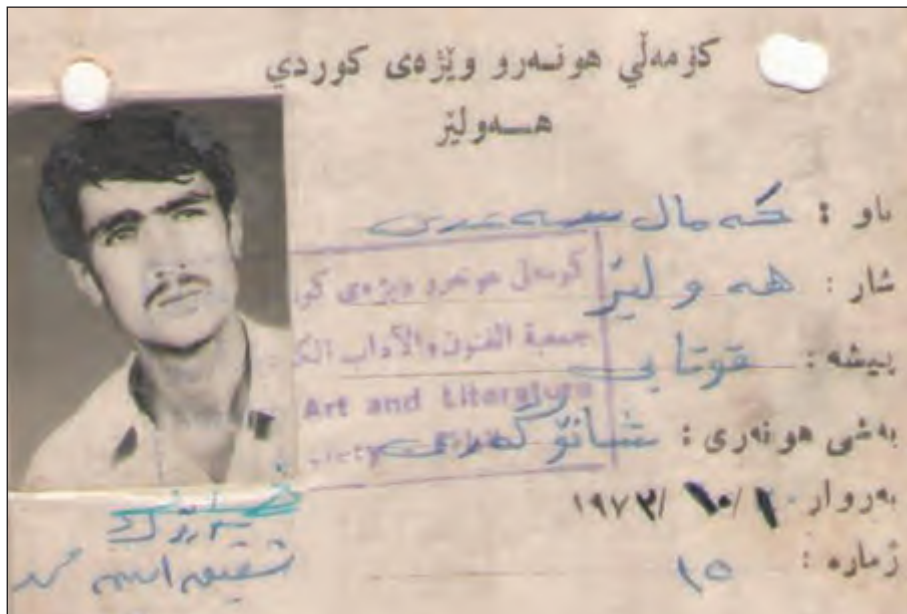 كۆمەڵي هونەرو وێژەى كوردي
هەولێر
ناو : كەمال
شار : هەولێر
پیشە : قوتابی
بەشی هونەری : شانۆگەری
بەروار ١٩٧٣/١٠/١٠
ژمارە : ١٥
كۆمەڵی هونەرو وێژەی
جمعية الفنون والآداب
Art and Literature